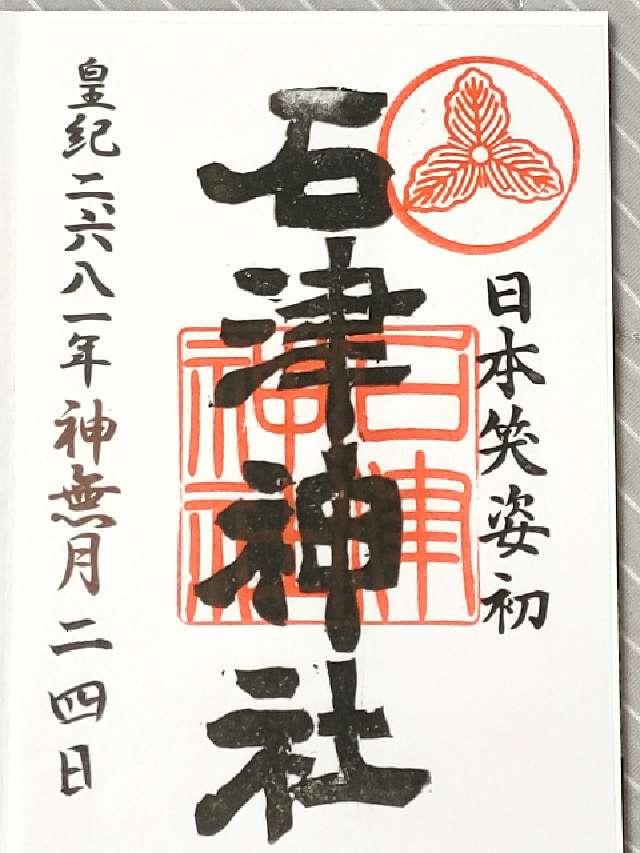 日本笑姿初
石津神社
石津
神社
皇紀二、六八一年神無月二四日